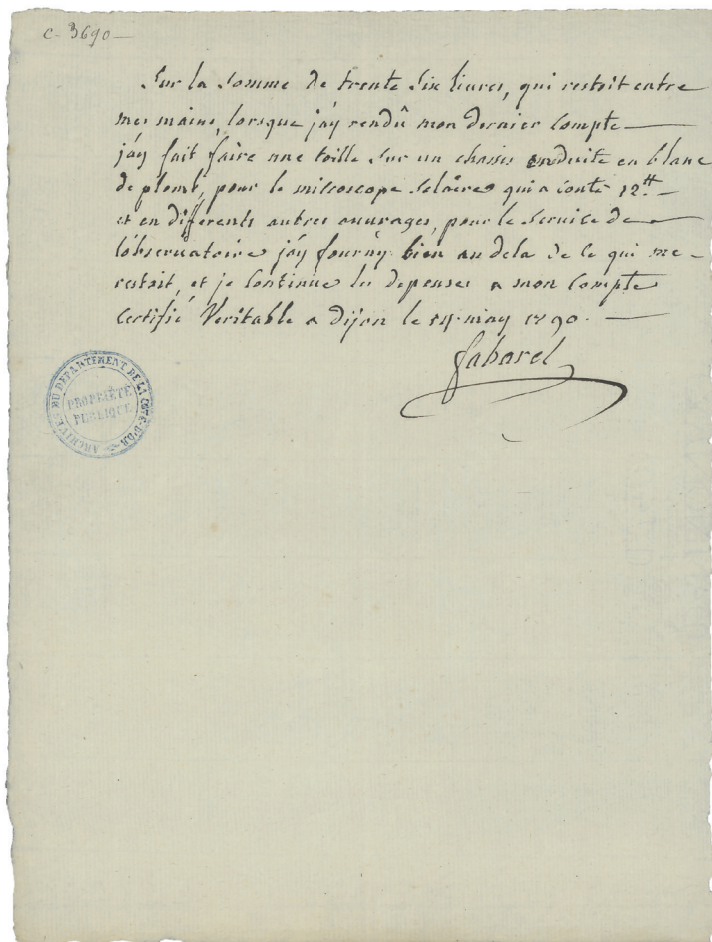 C- 3690-
Sur la Somme de trente Six livres, qui restoit entre
mes mains, lorsque j'ay rendû mon dernier Compte
j'ay fait faire une toille Sur un chassis enduite en blanc
de plomb, pour le microscope Solaire qui a couté 12tt
et en différents autres ouvrages, pour le Service de
l'observatoire j'ay fourny bien au dela de ce qui me
restoit, et je Continue les depenses a mon Compte
Certifié Veritable a Dijon le may 1790.
fabarel
ARCHIVES DU DÉPARTEMENT DE LA CÔTE-D'OR
PROPRIÉTÉ
PUBLIQUE